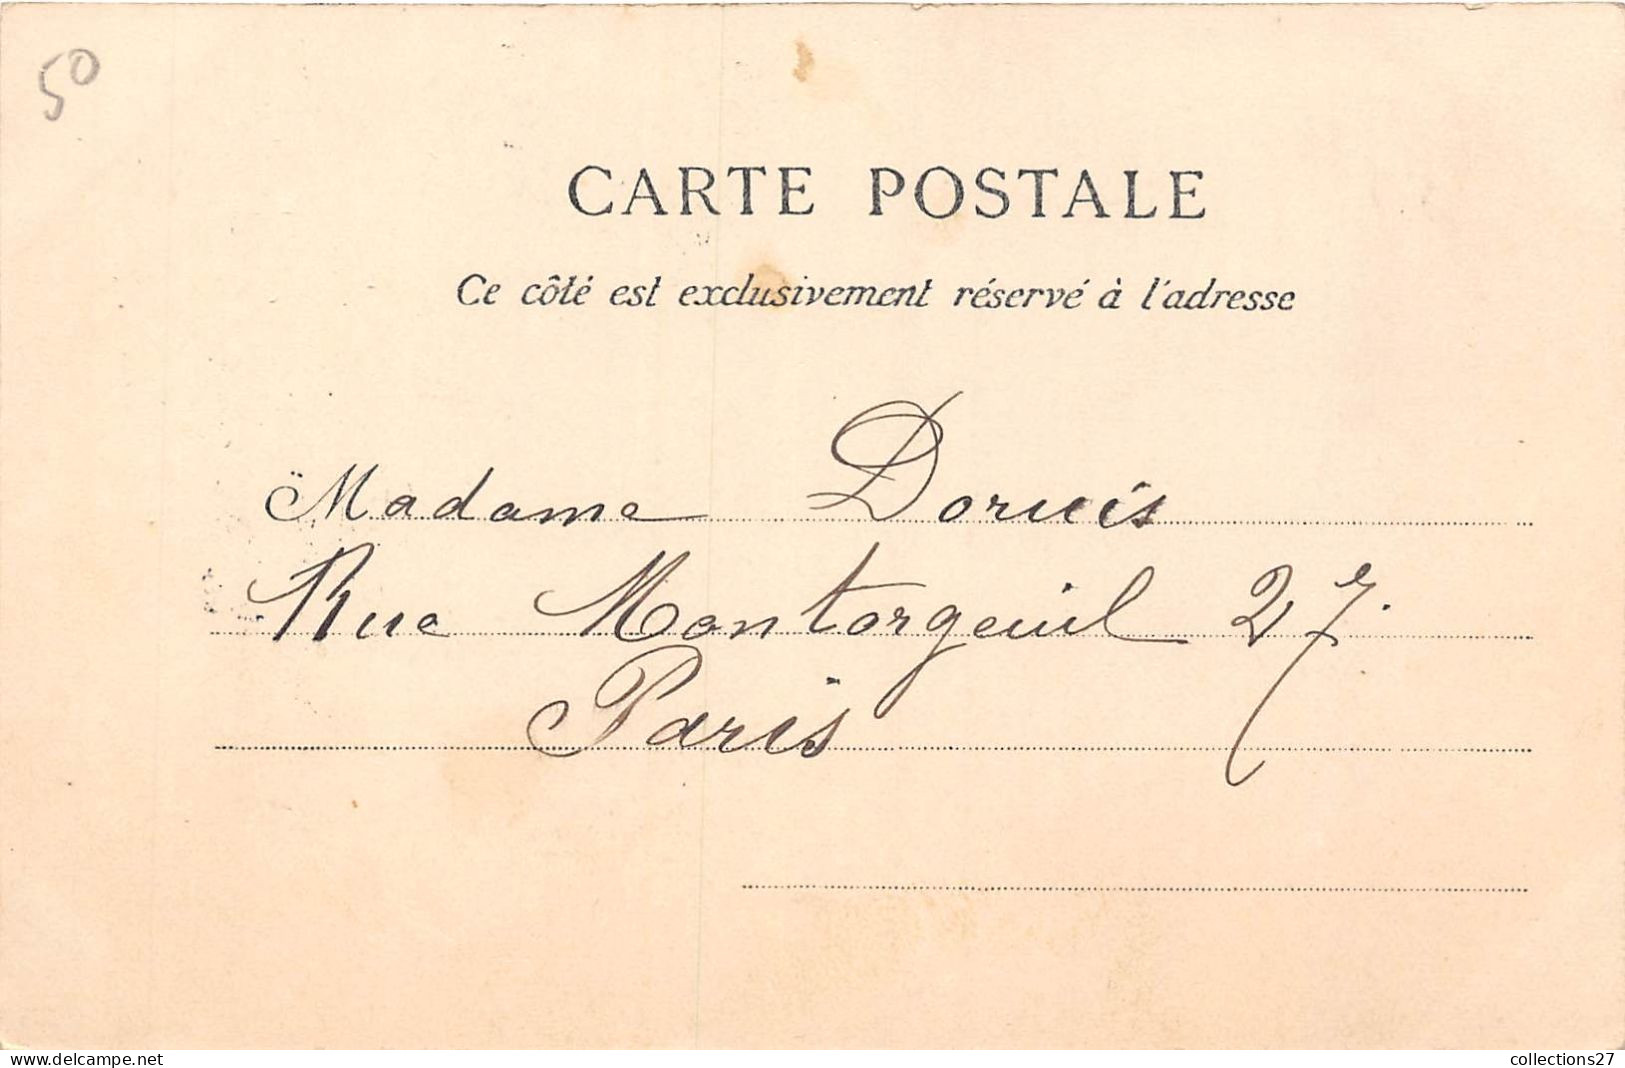 50
CARTE POSTALE
Ce côté est exclusivement réservé à l'adresse
Madame Doruis
Rue Montorgeuil 27.
Paris
www.delcampe.net
collections27